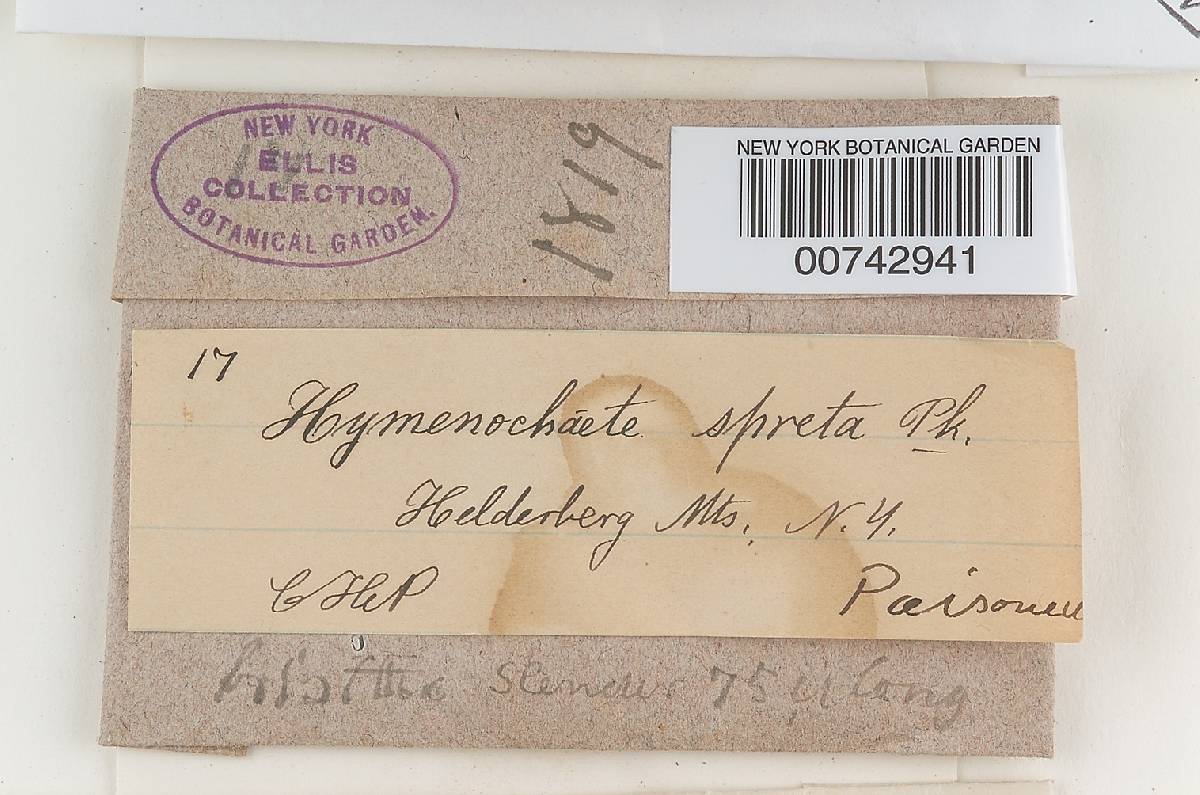 NEW YORK
ELLIS
COLLECTION
BOTANICAL GARDEN.
1819
NEW YORK BOTANICAL GARDEN
00742941
17
Hymenochaete spreta Pk.
Helderberg Mts. N.Y.
CHP
slender 75 µ long